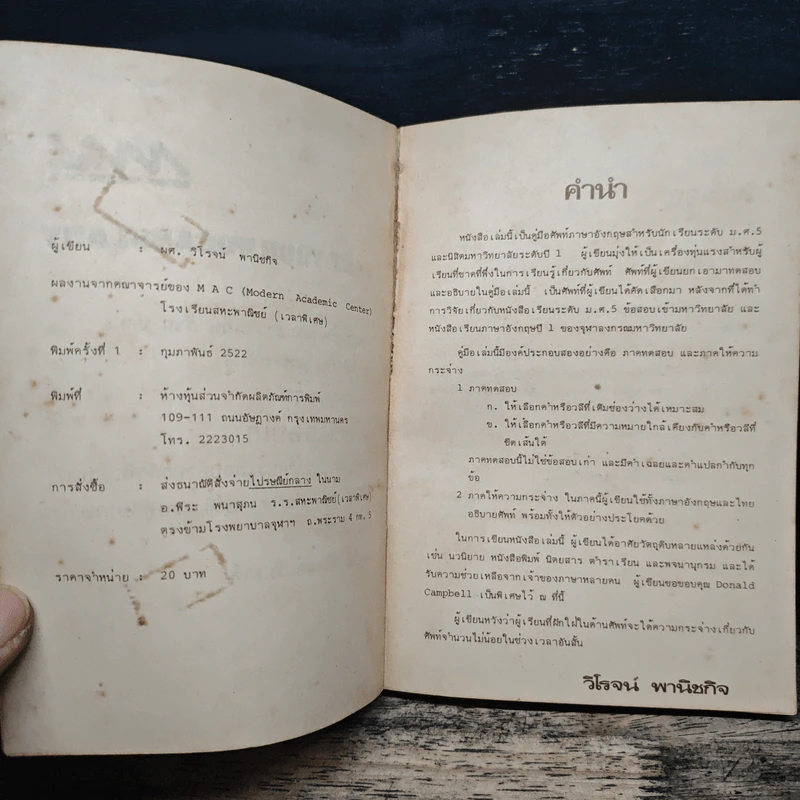 ผู้เขียน : ผศ. วิโรจน์ พานิชกิจ
ผลงานจากคณาจารย์ของ M A C (Modern Academic Center)
โรงเรียนสหะพาณิชย์ (เวลาพิเศษ)
พิมพ์ครั้งที่ 1 : กุมภาพันธ์ 2522
พิมพ์ที่ : ห้างหุ้นส่วนจำกัดผลิตภัณฑ์การพิมพ์
109-111 ถนนอัษฎางค์ กรุงเทพมหานคร
โทร. 2223015
การสั่งซื้อ : ส่งธนาณัติสั่งจ่ายไปรษณีย์กลาง ในนาม
อ.พีระ พนาสุภน ร.ร.สหะพาณิชย์(เวลาพิเศษ)
ตรงข้ามโรงพยาบาลจุฬาฯ ถ.พระราม 4 กท. 5
ราคาจำหน่าย : 20 บาท
คำนำ
หนังสือเล่มนี้เป็นคู่มือศัพท์ภาษาอังกฤษสำหรับนักเรียนระดับ ม.ศ.5
และนิสิตมหาวิทยาลัยระดับปี 1 ผู้เขียนมุ่งให้เป็นเครื่องทุ่นแรงสำหรับผู้
เรียนที่ขาดที่พึ่งในการเรียนรู้เกี่ยวกับศัพท์ ศัพท์ที่ผู้เขียนยกเอามาทดสอบ
และอธิบายในคู่มือเล่มนี้ เป็นศัพท์ที่ผู้เขียนได้คัดเลือกมา หลังจากที่ได้ทำ
การวิจัยเกี่ยวกับหนังสือเรียนระดับ ม.ศ.5 ข้อสอบเข้ามหาวิทยาลัย และ
หนังสือเรียนภาษาอังกฤษปี 1 ของจุฬาลงกรณมหาวิทยาลัย
คู่มือเล่มนี้มีองค์ประกอบสองอย่างคือ ภาคทดสอบ และภาคให้ความ
กระจ่าง
1 ภาคทดสอบ
ก. ให้เลือกคำหรือวลีที่เติมช่องว่างได้เหมาะสม
ข. ให้เลือกคำหรือวลีที่มีความหมายใกล้เคียงกับคำหรือวลีที่
ขีดเส้นใต้
ภาคทดสอบนี้ไม่ใช่ข้อสอบเก่า และมีคำเฉลยและคำแปลกำกับทุก
ข้อ
2 ภาคให้ความกระจ่าง ในภาคนี้ผู้เขียนใช้ทั้งภาษาอังกฤษและไทย
อธิบายศัพท์ พร้อมทั้งให้ตัวอย่างประโยคด้วย
ในการเขียนหนังสือเล่มนี้ ผู้เขียนได้อาศัยวัตถุดิบหลายแหล่งด้วยกัน
เช่น นวนิยาย หนังสือพิมพ์ นิตยสาร ตำราเรียน และพจนานุกรม และได้
รับความช่วยเหลือจากเจ้าของภาษาหลายคน ผู้เขียนขอขอบคุณ Donald
Campbell เป็นพิเศษไว้ ณ ที่นี้
ผู้เขียนหวังว่าผู้เรียนที่ฝักใฝ่ในด้านศัพท์จะได้ความกระจ่างเกี่ยวกับ
ศัพท์จำนวนไม่น้อยในช่วงเวลาอันสั้น
วิโรจน์ พานิชกิจ